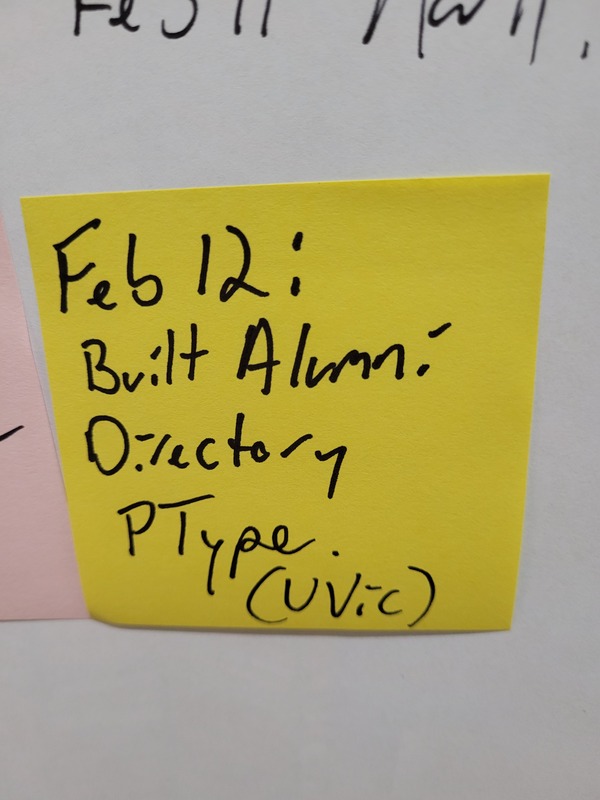 Feb 11
Feb 12:
Built Alumni
Directory
PType.
(UVic)